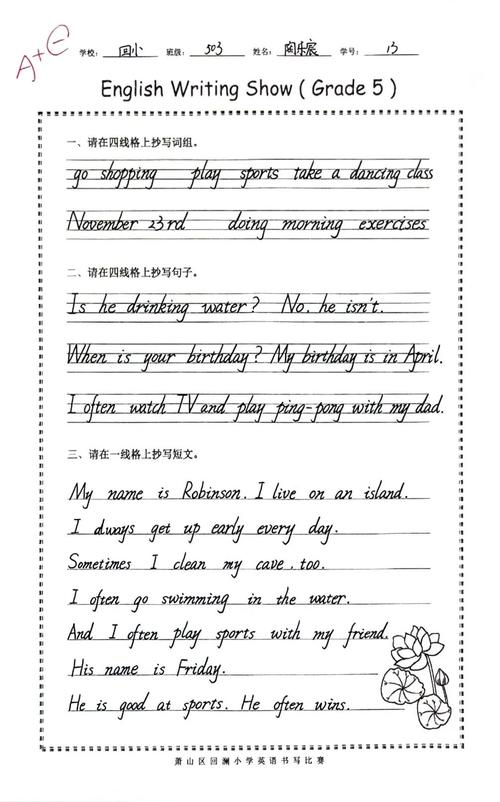 A+
学校: 回小 班级: 503 姓名: 陶乐宸 学号: 13
English Writing Show ( Grade 5 )
一、请在四线格上抄写词组。
go shopping play sports take a dancing class
November 23rd doing morning exercises
二、请在四线格上抄写句子。
Is he drinking water? No. he isn't.
When is your birthday? My birthday is in April.
I often watch TV and play ping-pong with my dad.
三、请在一线格上抄写短文。
My name is Robinson. I live on an island.
I always get up early every day.
Sometimes I clean my cave, too.
I often go swimming in the water.
And I often play sports with my friend.
His name is Friday.
He is good at sports. He often wins.
萧山区回澜小学英语书写比赛